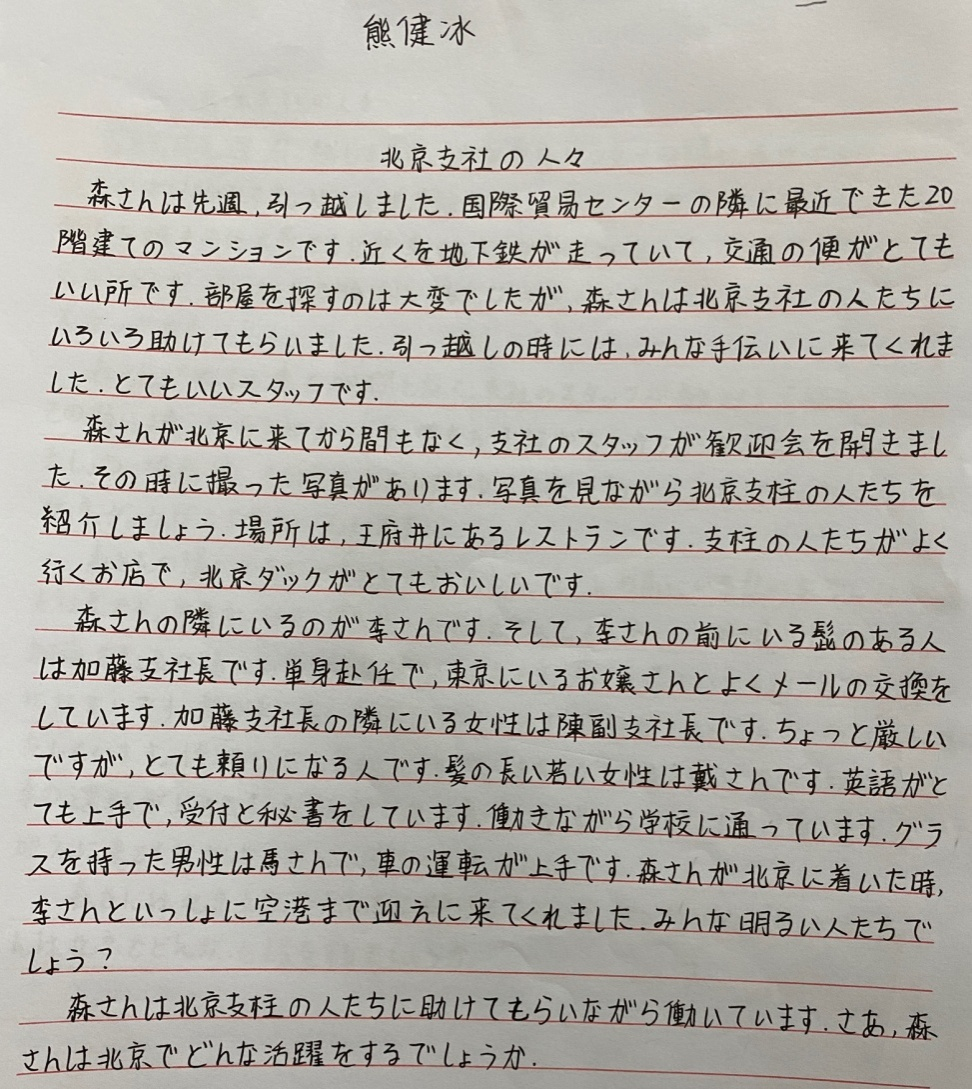 熊健冰
北京支社の人々
森さんは先週,引っ越しました.国際貿易センターの隣に最近できた20
階建てのマンションです.近くを地下鉄が走っていて,交通の便がとても
いい所です.部屋を探すのは大変でしたが,森さんは北京支社の人たちに
いろいろ助けてもらいました.引っ越しの時には,みんな手伝いに来てくれま
した.とてもいいスタッフです.
森さんが北京に来てから間もなく,支社のスタッフが歓迎会を開きまし
た.その時に撮った写真があります.写真を見ながら北京支柱の人たちを
紹介しましょう.場所は,王府井にあるレストランです.支柱の人たちがよく
行くお店で,北京ダックがとてもおいしいです.
森さんの隣にいるのが李さんです.そして,李さんの前にいる髭のある人
は加藤支社長です.単身赴任で,東京にいるお嬢さんとよくメールの交換を
しています.加藤支社長の隣にいる女性は陳副支社長です.ちょっと厳しい
ですが,とても頼りになる人です.髪の長い若い女性は戴さんです.英語がと
ても上手で,受付と秘書をしています.働きながら学校に通っています.グラ
スを持った男性は馬さんで,車の運転が上手です.森さんが北京に着いた時,
李さんといっしょに空港まで迎えに来てくれました.みんな明るい人たちで
しょう?
森さんは北京支柱の人たちに助けてもらいながら働いています.さあ,森
さんは北京でどんな活躍をするでしょうか.